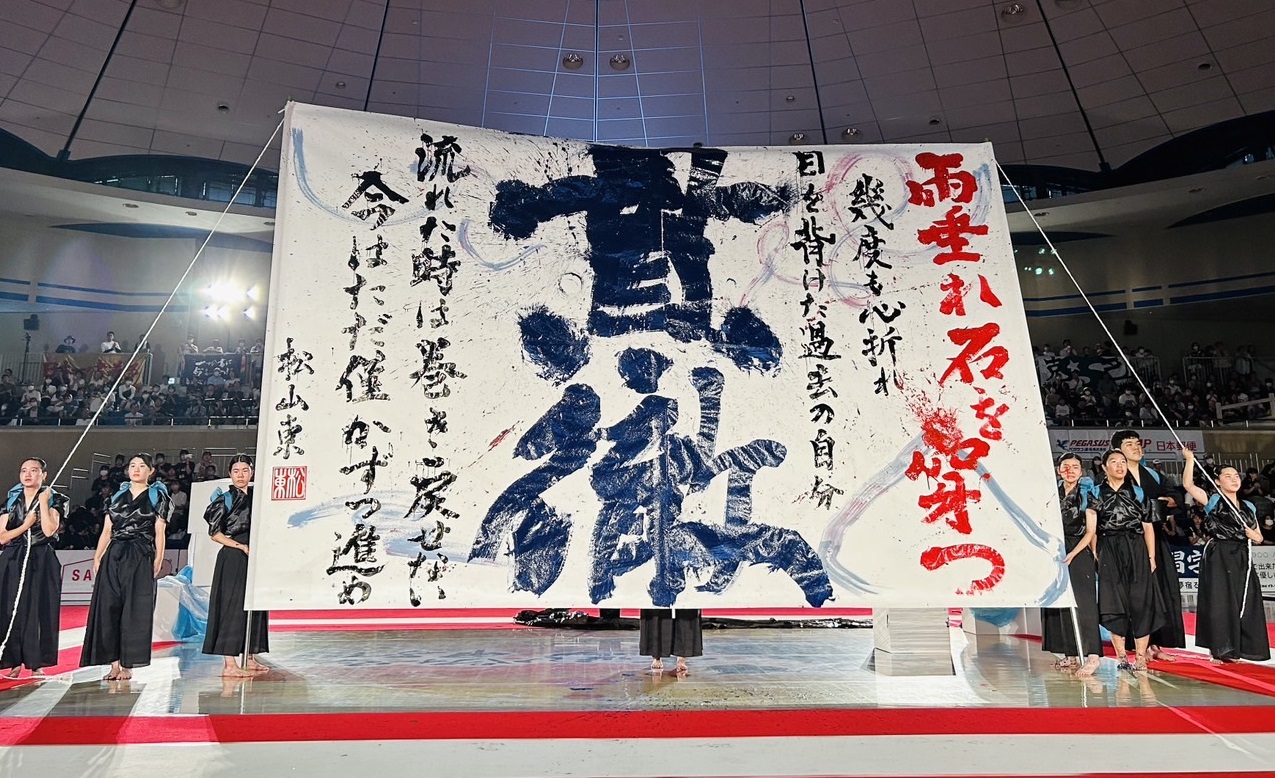 雨垂れ石を穿つ
幾度も心折れ
目を背けた過去の自分
貫徹
流れた時は巻き戻せない
今はただ僅かずつ進め
松山東
松東
PEGASUS
日本郵便